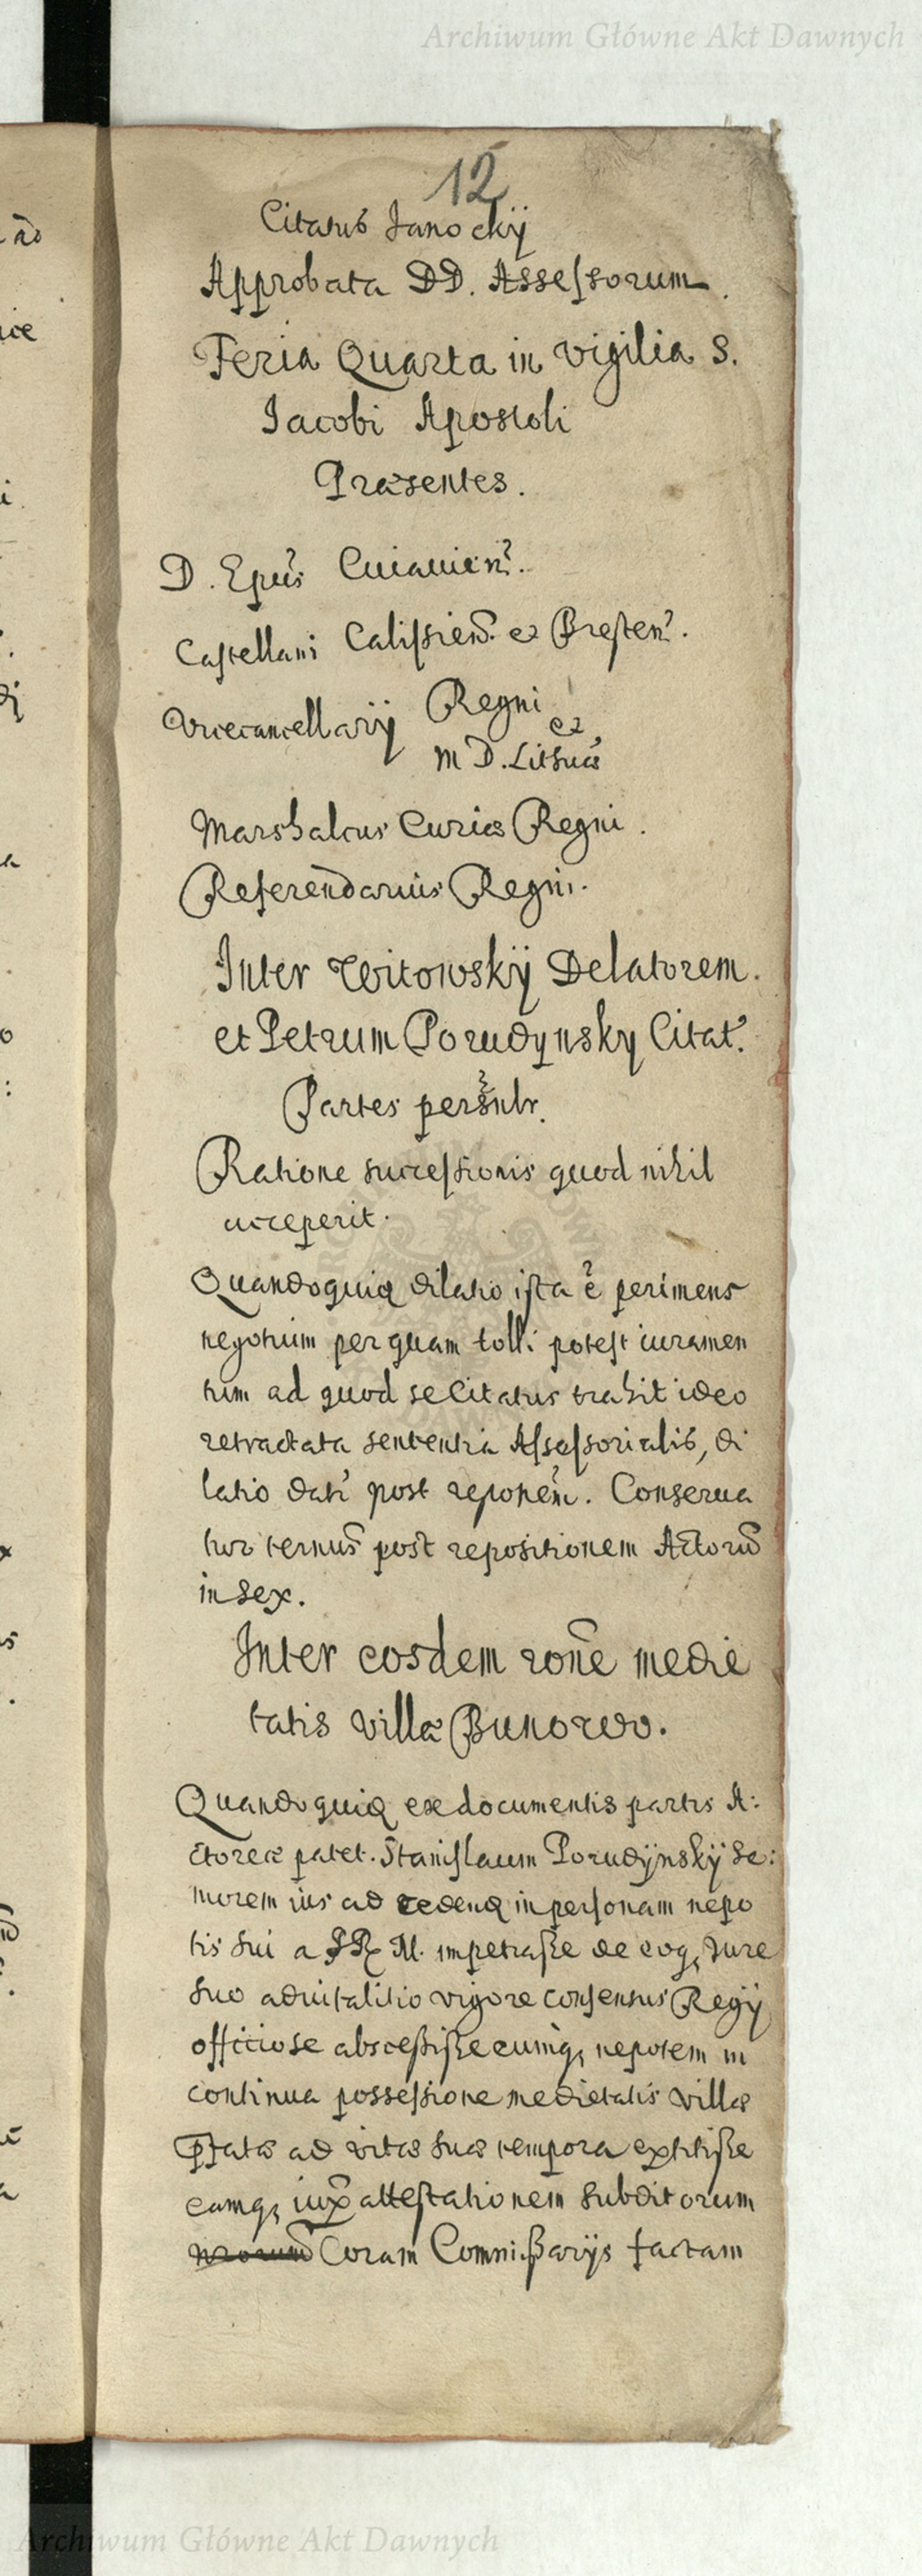 Archiwum Główne Akt Dawnych
12
Citatus Janockÿ
Approbata DD. Assessorum.
Feria Quarta in vigilia S.
Jacobi Apostoli
Præsentes.
D. Epus Cuiavien.
Castellani Calissien. et Bresten.
Vicecancellarÿ Regni
et
M D. Lithuæ
Marshalcus Curiæ Regni.
Referendarius Regni.
Inter Witowskÿ Delatorem.
et Petrum Porudynsky Citat.
Partes persntr.
Ratione successionis quod nihil
acceperit.
Quandoquid dilatio ista e perimens
negotium per quam tolli potest iuramen
tum ad quod se Citatus trahit ideo
retractata sententia Assessorialis, di
latio dat post reponen. Conserva
tur ternus post repositionem Actoru
in sex.
Inter eosdem rone medie
tatis villæ Bunorvo.
Quandoquid ex documentis partis A:
ctoreæ patet. Stanislaum Porudÿnskÿ Se:
niorem ius ad cedend in personam nepo
tis sui a SR M. impetrasse de eoq, Jure
suo advitalitio vigore consensus Regÿ
officiose abscessisse eumq, nepotem in
continua possessione medietatis villæ
pstatæ ad vitæ suæ tempora extitisse
eamq, iux attestationem subditorum
Coram Commissarÿs factam
Archiwum Główne Akt Dawnych